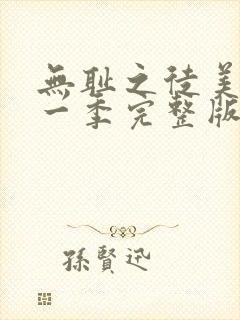 無耻之徒美
一季完整版
孫賢迅